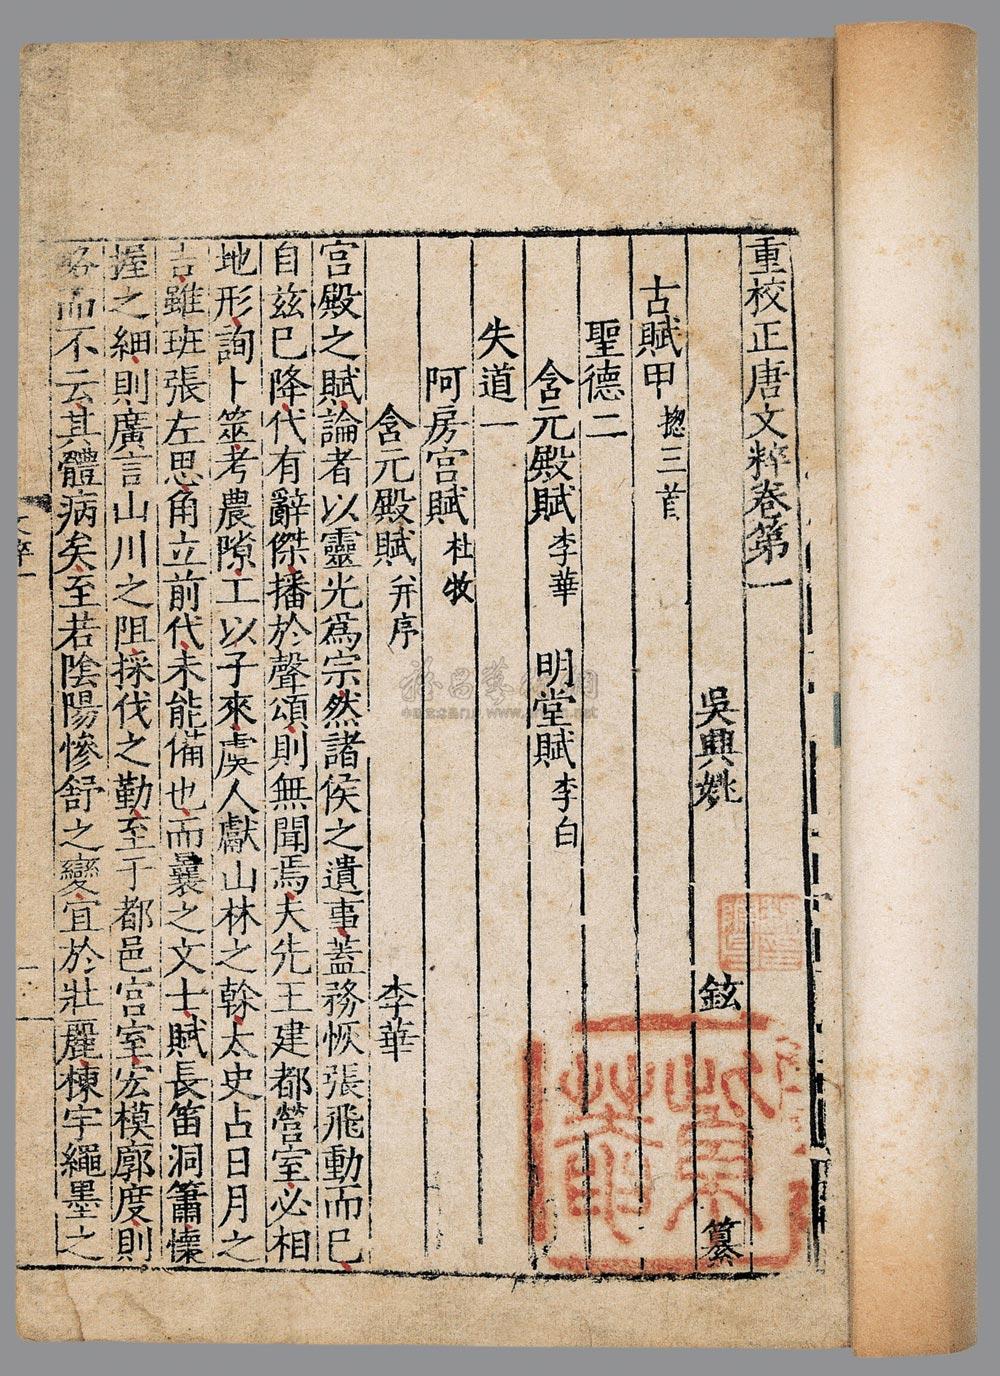 重校正唐文粹卷第一
吳興姚 鉉 纂
古賦甲 摠三首
聖德二
含元殿賦 李華 明堂賦 李白
失道一
阿房宮賦 杜牧
含元殿賦 并序 李華
宮殿之賦論者以靈光爲宗然諸侯之遺事蓋務恢張飛動而已
自茲已降代有辭傑播於聲頌則無聞焉夫先王建都營室必相
地形詢卜筮考農隙工以子來虞人獻山林之榦太史占日月之
吉雖班張左思角立前代未能備也而曩之文士賦長笛洞簫懷
握之細則廣言山川之阻採伐之勤至于都邑宮室宏模廓度則
略而不云其體病矣至若陰陽慘舒之變宜於壯麗棟宇繩墨之